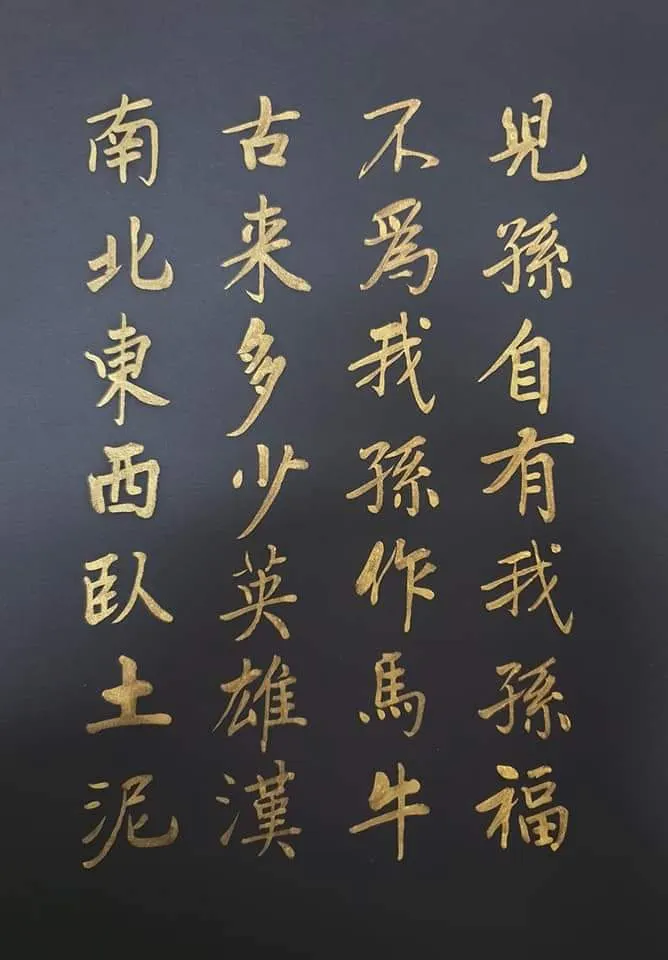 兒孫自有我孫福
不為我孫作馬牛
古来多少英雄漢
南北東西臥土泥